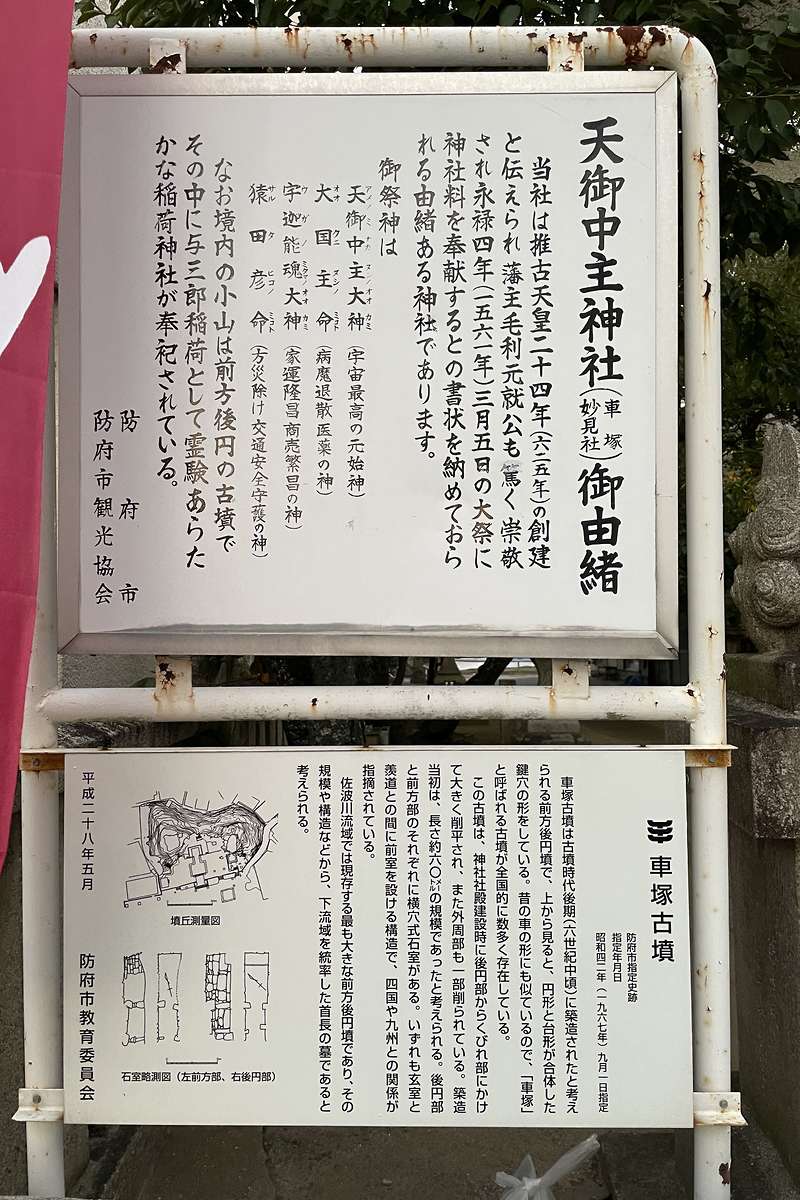 天御中主神社(車塚妙見社)御由緒
当社は推古天皇二十四年(六二五年)の創建
と伝えられ藩主毛利元就公も篤く崇敬
され永禄四年(一五六一年)三月五日の大祭に
神社料を奉献するとの書状を納めておら
れる由緒ある神社であります。
御祭神は
天御中主大神(宇宙最高の元始神)
アメノミナカヌシノオオカミ
大国主命(病魔退散医薬の神)
オオクニヌシノミコト
宇迦能魂大神(家運隆昌商売繁昌の神)
ウガノミタマノオオカミ
猿田彦命(方災除け交通安全守護の神)
サルタヒコノミコト
なお境内の小山は前方後円の古墳で
その中に与三郎稲荷として霊験あらた
かな稲荷神社が奉祀されている。
防府市
防府市観光協会
車塚古墳
防府市指定史跡
指定年月日
昭和四二年(一九六七年)九月一日指定
車塚古墳は古墳時代後期(六世紀中頃)に築造されたと考え
られる前方後円墳で、上から見ると、円形と台形が合体した
鍵穴の形をしている。昔の車の形にも似ているので、「車塚」
と呼ばれる古墳が全国的に数多く存在している。
この古墳は、神社社殿建設時に後円部からくびれ部にかけ
て大きく削平され、また外周部も一部削られている。築造
当初は、長さ約六〇メートルの規模であったと考えられる。後円部
と前方部のそれぞれに横穴式石室がある。いずれも玄室と
羨道との間に前室を設ける構造で、四国や九州との関係が
指摘されている。
佐波川流域では現存する最も大きな前方後円墳であり、その
規模や構造などから、下流域を統率した首長の墓であると
考えられる。
墳丘測量図
石室略測図(左前方部、右後円部)
平成二十八年五月
防府市教育委員会